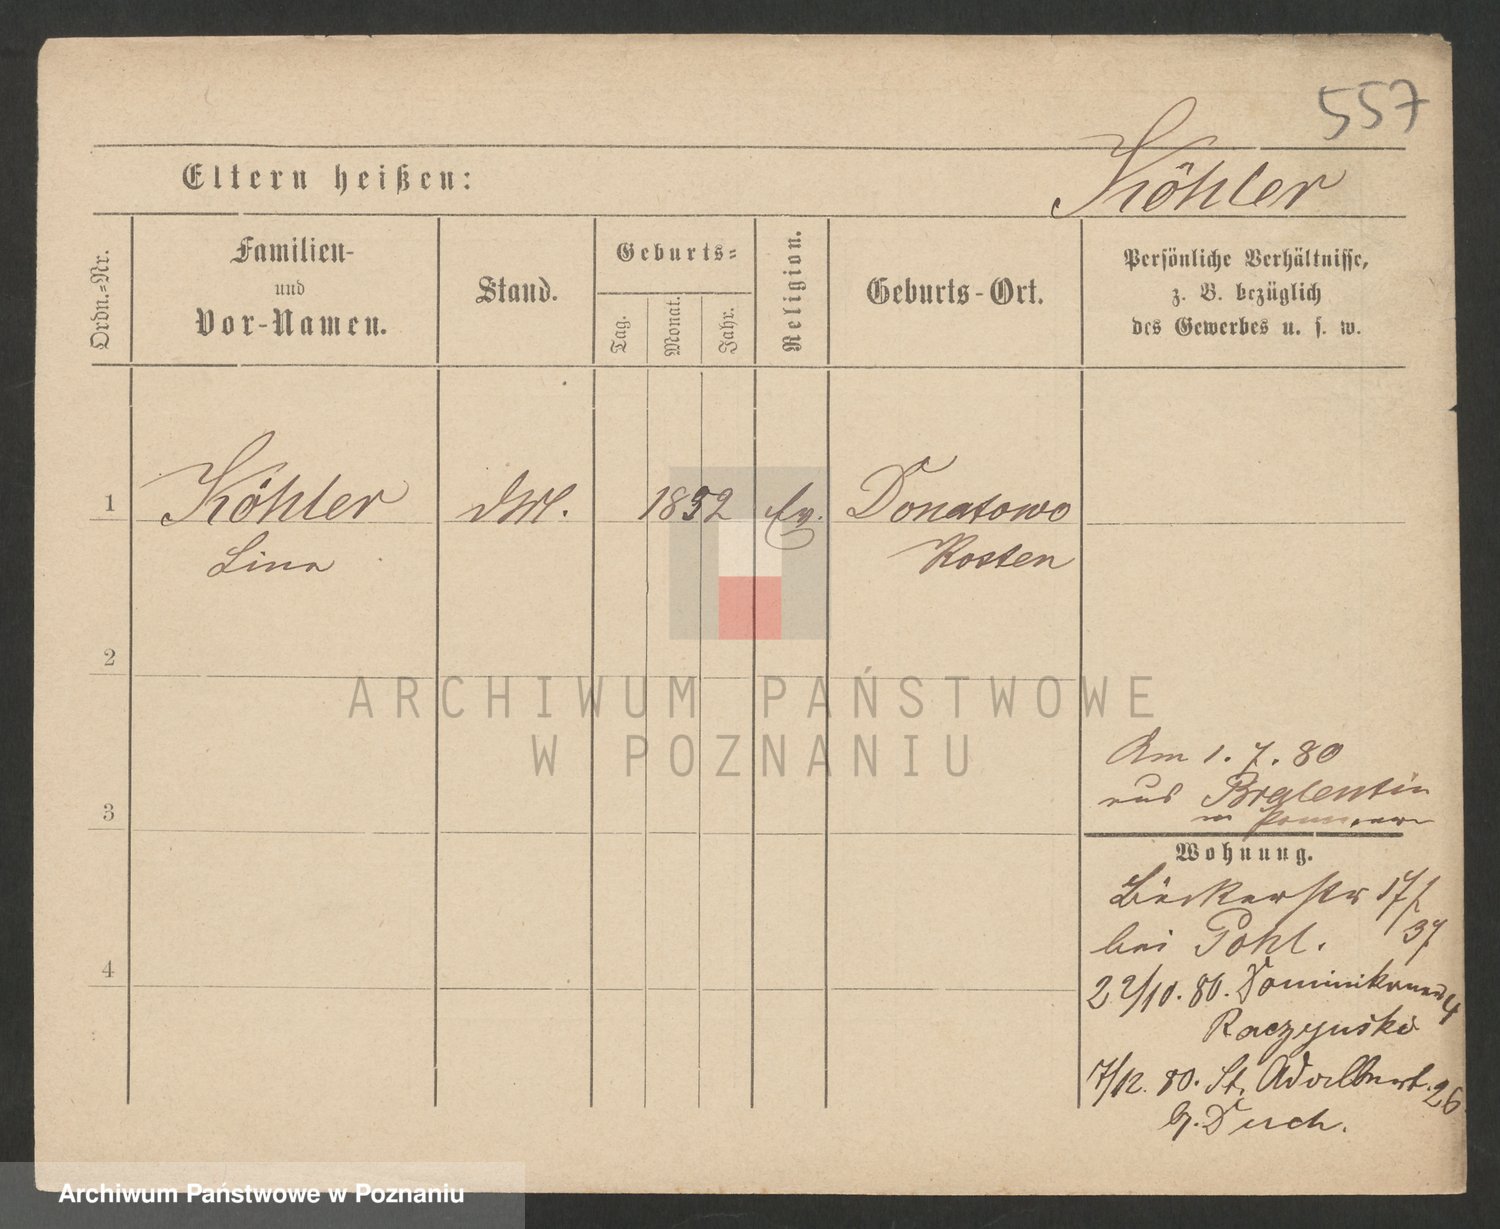 557
Eltern heißen:
Köhler
Ordn.-Nr.
Familien-
und
Vor-Namen.
Stand.
Geburts-
Tag.
Monat.
Jahr.
Religion.
Geburts-Ort.
Persönliche Verhältnisse,
z. B. bezüglich
des Gewerbes u. s. w.
1 Köhler 1852 Ev. Donatowo
Lina Kosten
2
ARCHIWUM PAŃSTWOWE
W POZNANIU
Am 1.7.80
aus Bralentin
in Pommern
3
Wohnung.
Bäckerstr 17/
37
bei Pohl.
4
22/10. 80. Dominikaner 4
Raczynski
7/12. 80. St. Adalbert. 26
b.
Archiwum Państwowe w Poznaniu